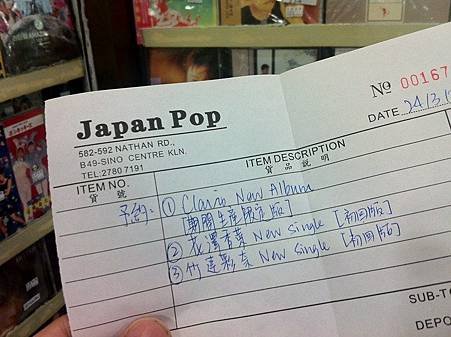 Japan Pop
Nº 00167
582-592 NATHAN RD.,
B49-SINO CENTRE KLN.
TEL:2780 7191
DATE 24/3/1
ITEM NO.
貨號
ITEM DESCRIPTION
貨品說明
予約: ① Claris New Album
[期間生產限定版]
② 花澤香菜 New Single [初回版]
③ 竹達彩奈 New Single [初回版]
SUB-TO
DEPO